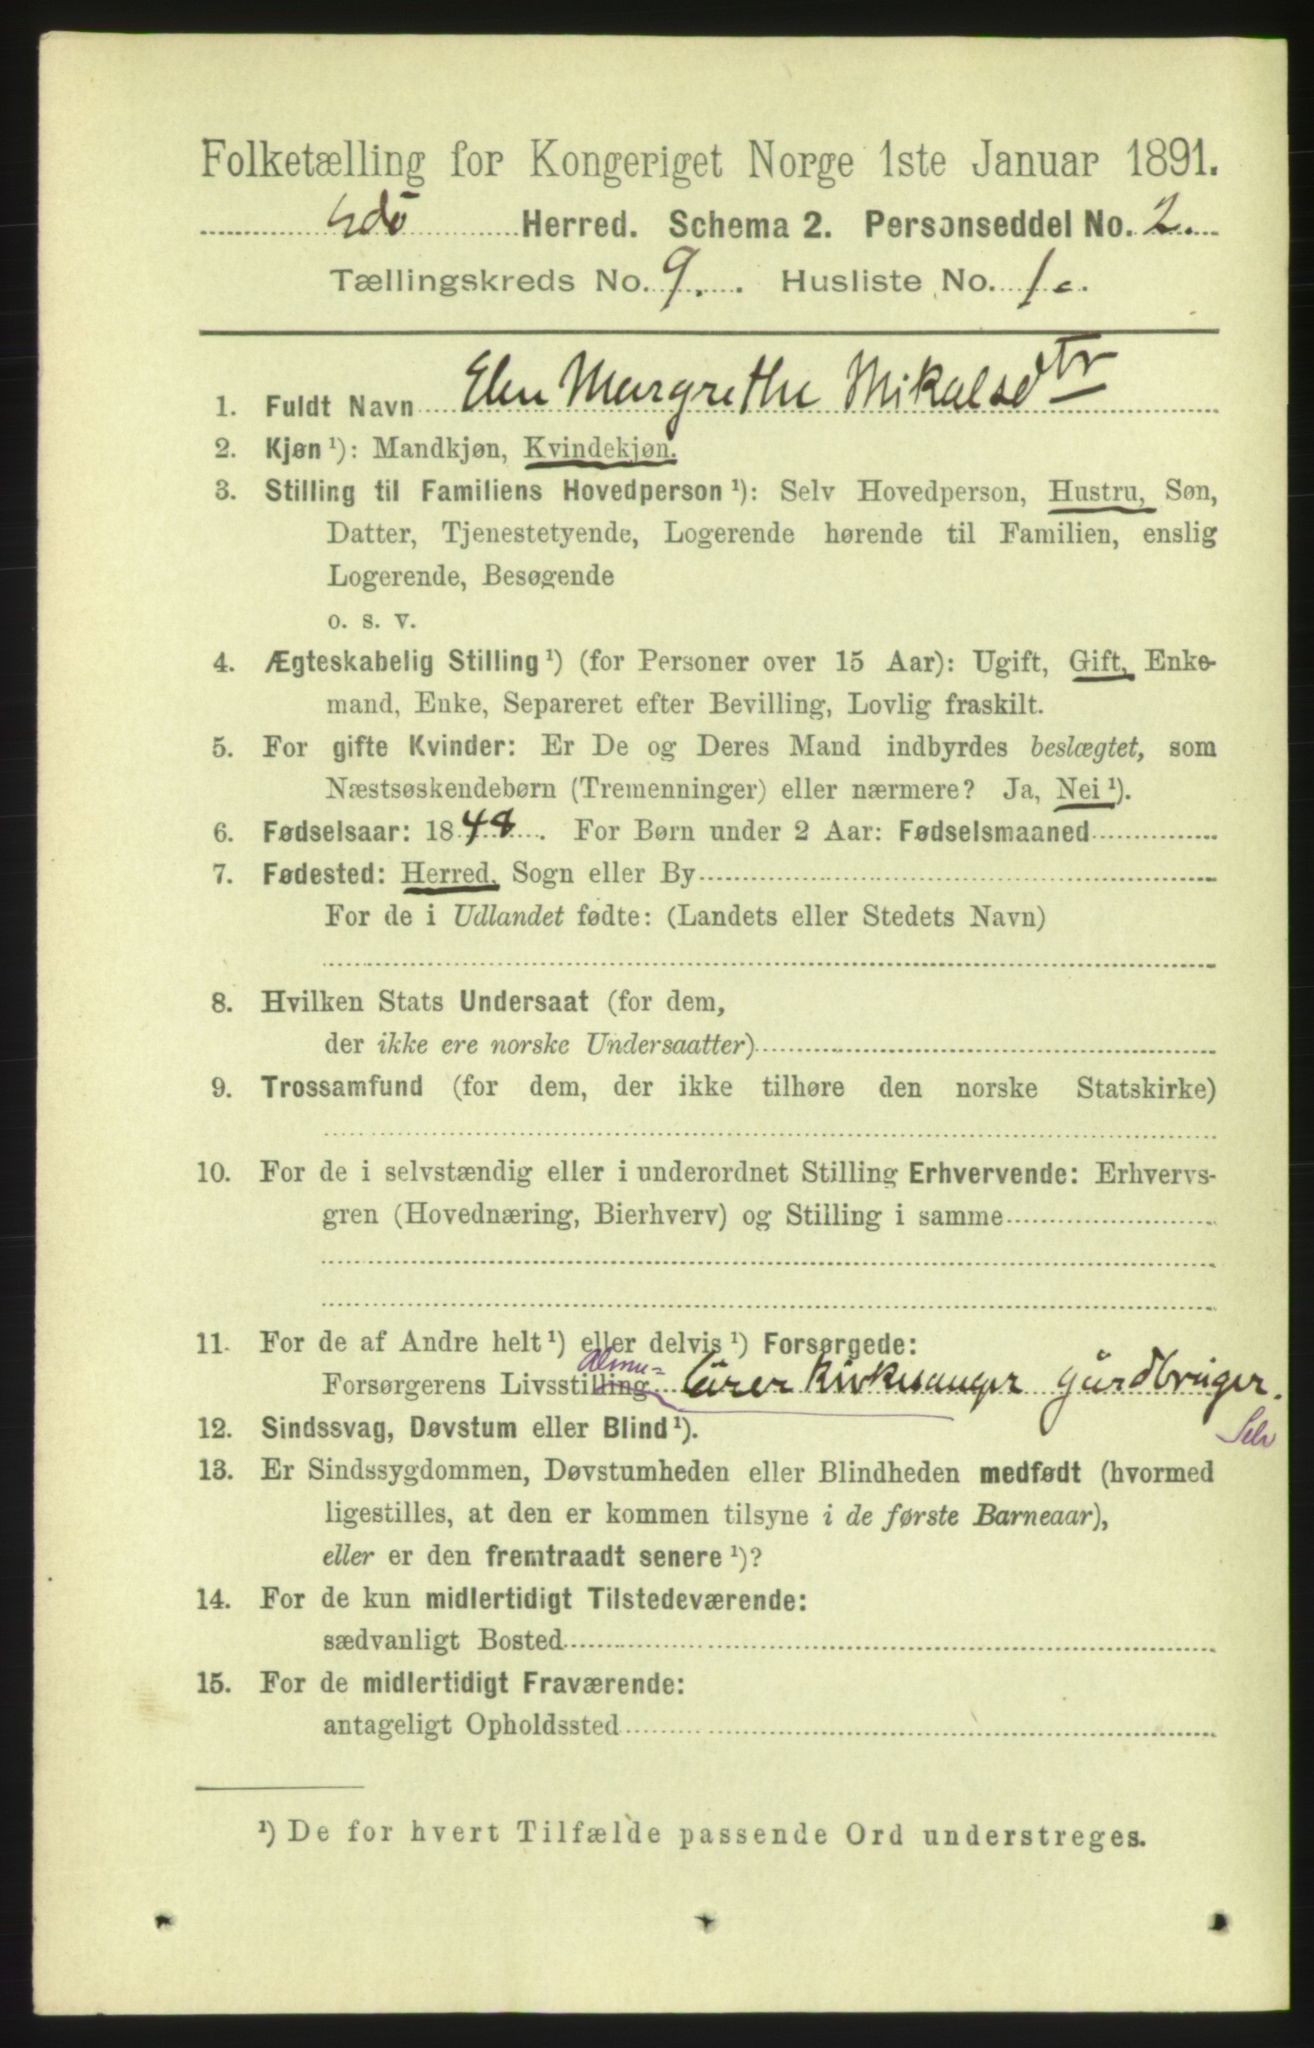 Folketælling for Kongeriget Norge 1ste Januar 1891.
Edö Herred. Schema 2. Personseddel No. 2.
Tællingskreds No. 9. Husliste No. 1.
1. Fuldt Navn Elen Margrethe Mikalsdtr
2. Kjøn ¹): Mandkjøn, Kvindekjøn.
3. Stilling til Familiens Hovedperson ¹): Selv Hovedperson, Hustru, Søn,
Datter, Tjenestetyende, Logerende hørende til Familien, enslig
Logerende, Besøgende
o. s. v.
4. Ægteskabelig Stilling ¹) (for Personer over 15 Aar): Ugift, Gift, Enke-
mand, Enke, Separeret efter Bevilling, Lovlig fraskilt.
5. For gifte Kvinder: Er De og Deres Mand indbyrdes beslægtet, som
Næstsøskendebørn (Tremenninger) eller nærmere? Ja, Nei ¹).
6. Fødselsaar: 1848. For Børn under 2 Aar: Fødselsmaaned
7. Fødested: Herred, Sogn eller By
For de i Udlandet fødte: (Landets eller Stedets Navn)
8. Hvilken Stats Undersaat (for dem,
der ikke ere norske Undersaatter)
9. Trossamfund (for dem, der ikke tilhøre den norske Statskirke)
10. For de i selvstændig eller i underordnet Stilling Erhvervende: Erhvervs-
gren (Hovednæring, Bierhverv) og Stilling i samme
11. For de af Andre helt ¹) eller delvis ¹) Forsørgede:
Almu-
Forsørgerens Livsstilling. lärer Kirkesanger gårdbruger.
Selv
12. Sindssvag, Døvstum eller Blind ¹).
13. Er Sindssygdommen, Døvstumheden eller Blindheden medfødt (hvormed
ligestilles, at den er kommen tilsyne i de første Barneaar),
eller er den fremtraadt senere ¹)?
14. For de kun midlertidigt Tilstedeværende:
sædvanligt Bosted
15. For de midlertidigt Fraværende:
antageligt Opholdssted
¹) De for hvert Tilfælde passende Ord understreges.